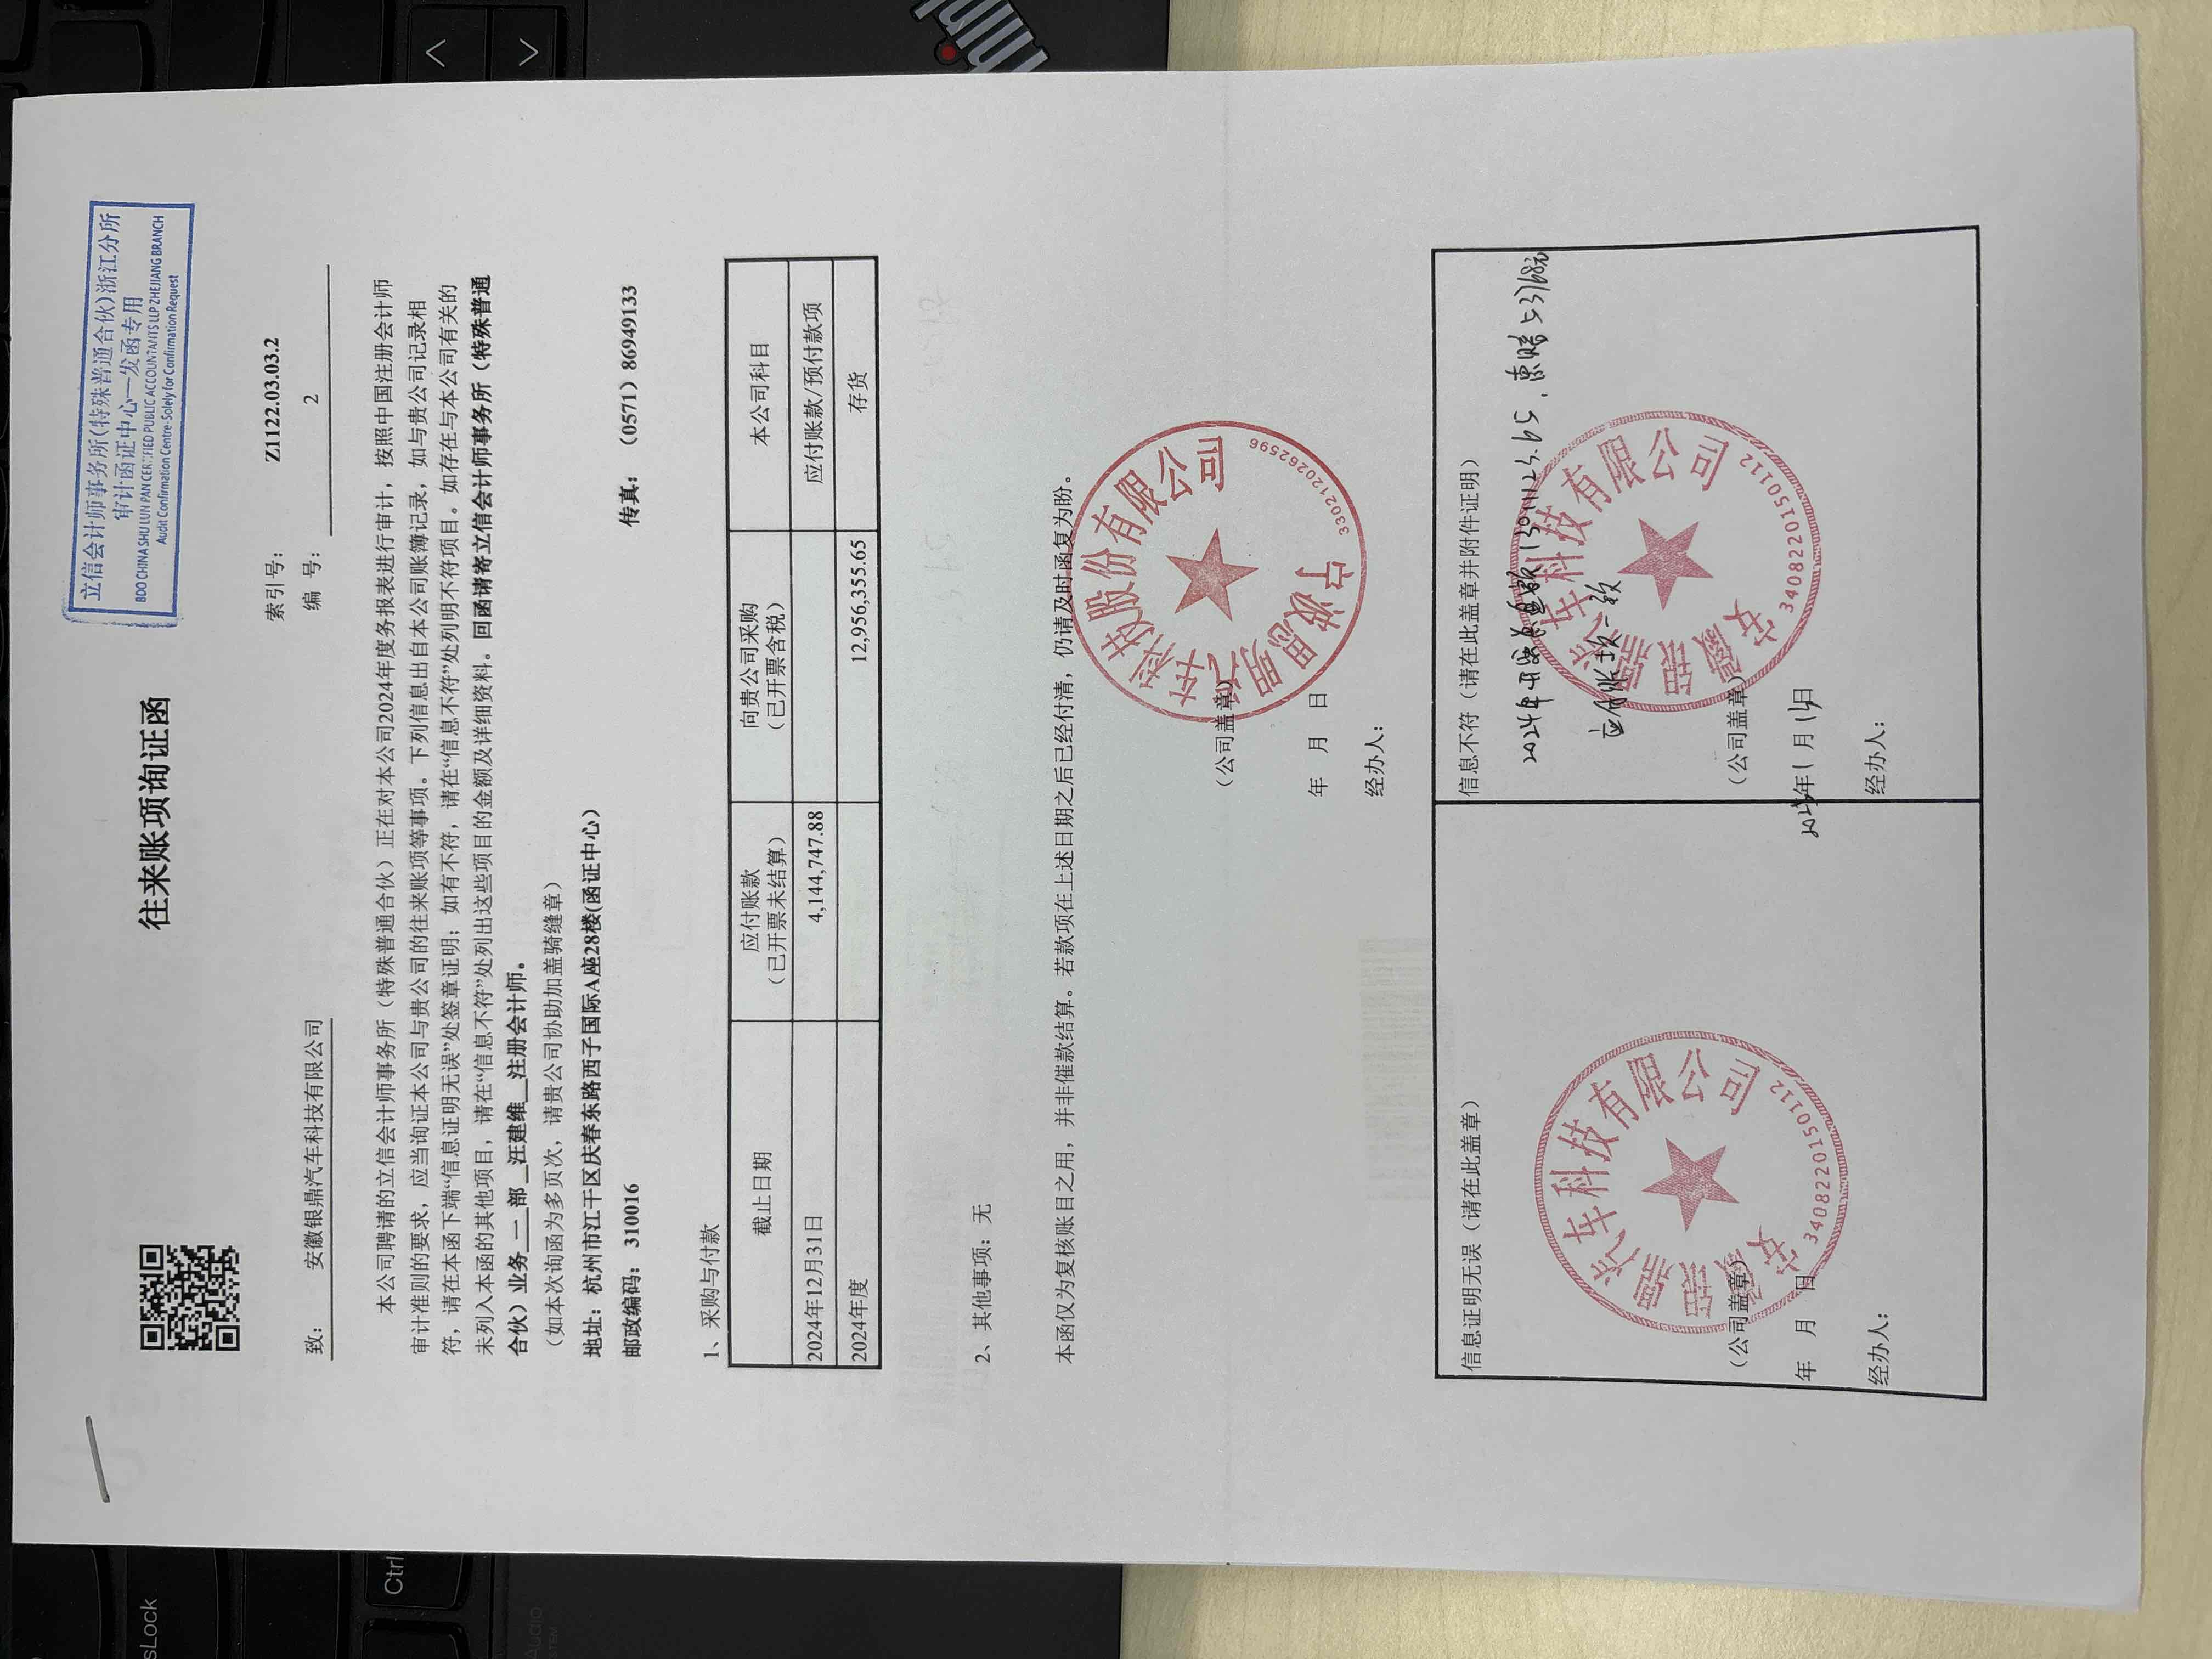 立信会计师事务所(特殊普通合伙)浙江分所
审计函证中心—发函专用
BDO CHINA SHU LUN PAN CERTIFIED PUBLIC ACCOUNTANTS LLP ZHEJIANG BRANCH
Audit Confirmation Centre-Solely for Confirmation Request
往来账项询证函
索引号： Z1122.03.03.2
致： 安徽银鼎汽车科技有限公司
编 号： 2
本公司聘请的立信会计师事务所（特殊普通合伙）正在对本公司2024年度务报表进行审计，按照中国注册会计师
审计准则的要求，应当询证本公司与贵公司的往来账项等事项。下列信息出自本公司账簿记录，如与贵公司记录相
符，请在本函下端“信息证明无误”处签章证明；如有不符，请在“信息不符”处列明不符项目。如存在与本公司有关的
未列入本函的其他项目，请在“信息不符”处列出这些项目的金额及详细资料。回函请寄立信会计师事务所（特殊普通
合伙）业务 一 部 汪建维 注册会计师。
（如本次询函为多页次，请贵公司协助加盖骑缝章）
地址：杭州市江干区庆春东路西子国际A座28楼(函证中心）
邮政编码： 310016 传真：（0571）86949133
1、采购与付款
截止日期 应付账款（已开票未结算） 向贵公司采购（已开票含税） 本公司科目
2024年12月31日 4,144,747.88 应付账款/预付款项
2024年度 12,956,355.65 存货
2、其他事项：无
本函仅为复核账目之用，并非催款结算。若款项在上述日期之后已经付清，仍请及时函复为盼。
宁波思明汽车科技股份有限公司
3302120262596
（公司盖章）
年 月 日
经办人：
信息证明无误（请在此盖章）
安徽银鼎汽车科技有限公司
3408220150112
（公司盖章）
年 月 日
经办人：
信息不符（请在此盖章并附件证明）
2024年开票总金额 13011123.65，索赔53768元
应付账款一致
安徽银鼎汽车科技有限公司
3408220150112
（公司盖章）
年1月 日
经办人：
sLock
Ctrl
Audio